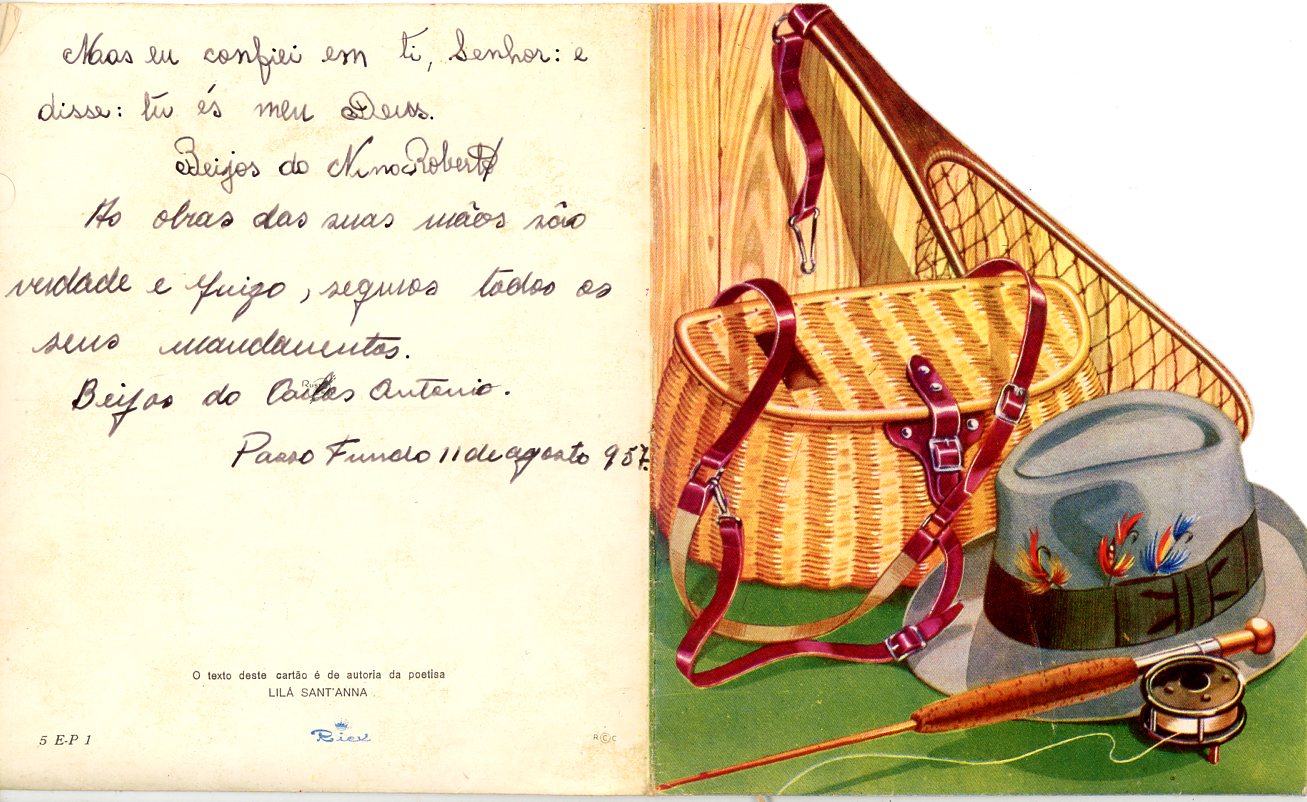 Maas eu confiei em ti, Senhor: e
disse: tu és meu Deus.
Beijos do Nino Roberto
As obras das suas mãos são
verdade e juizo, seguros todos os
seus mandamentos.
Beijos do Carlos Antonio.
Passo Fundo 11 de agosto 957.
O texto deste cartão é de autoria da poetisa
LILÁ SANT'ANNA
5 E-P 1
RCC